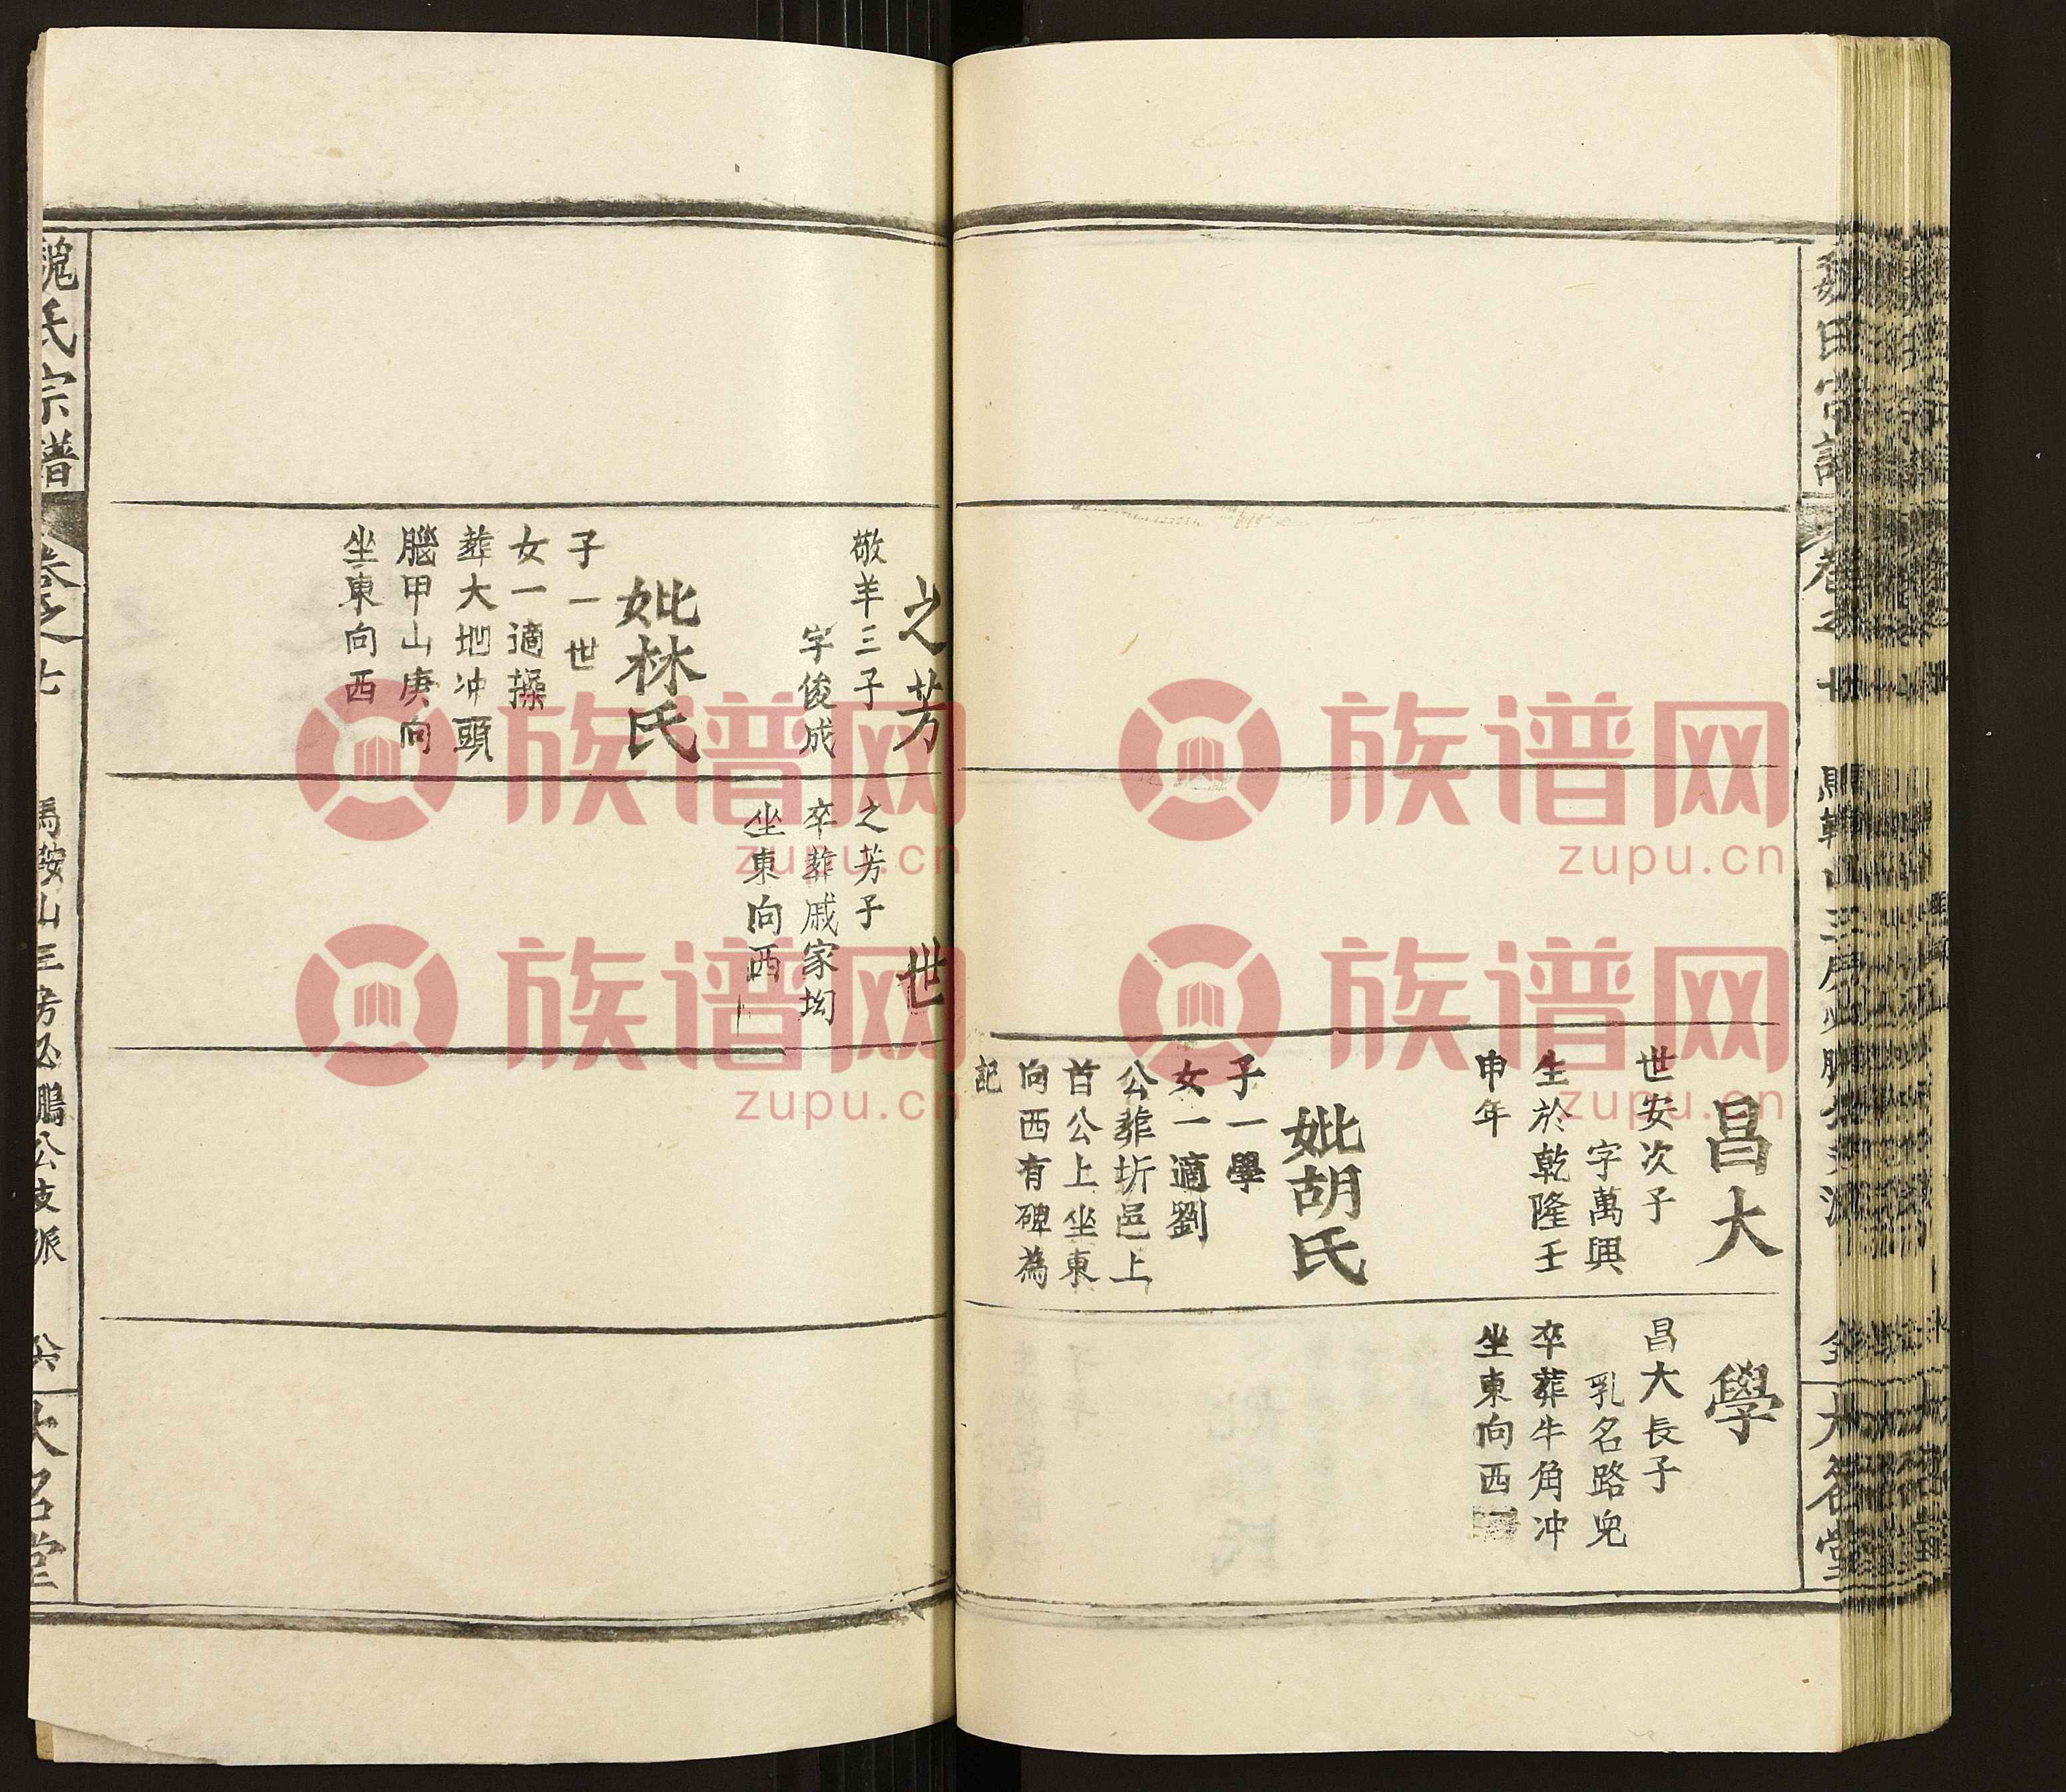 昌大
世安次子
字萬興
生於乾隆壬
申年
妣胡氏
子一學
女一適劉
公葬圻邑上
首公上坐東
向西有碑為
記
學
昌大長子
乳名路兒
卒葬牛角冲
坐東向西
之芳
敬羊三子
字俊成
妣林氏
子一世
女一適操
葬大地冲頭
腦甲山庚向
坐東向西
世
之芳子
卒葬戚家坳
坐東向西
魏氏宗譜
卷之七
馬鞍山三房必鵬公支派
大名堂
族谱网
zupu.cn
族谱网
zupu.cn
族谱网
zupu.cn
族谱网
zupu.cn